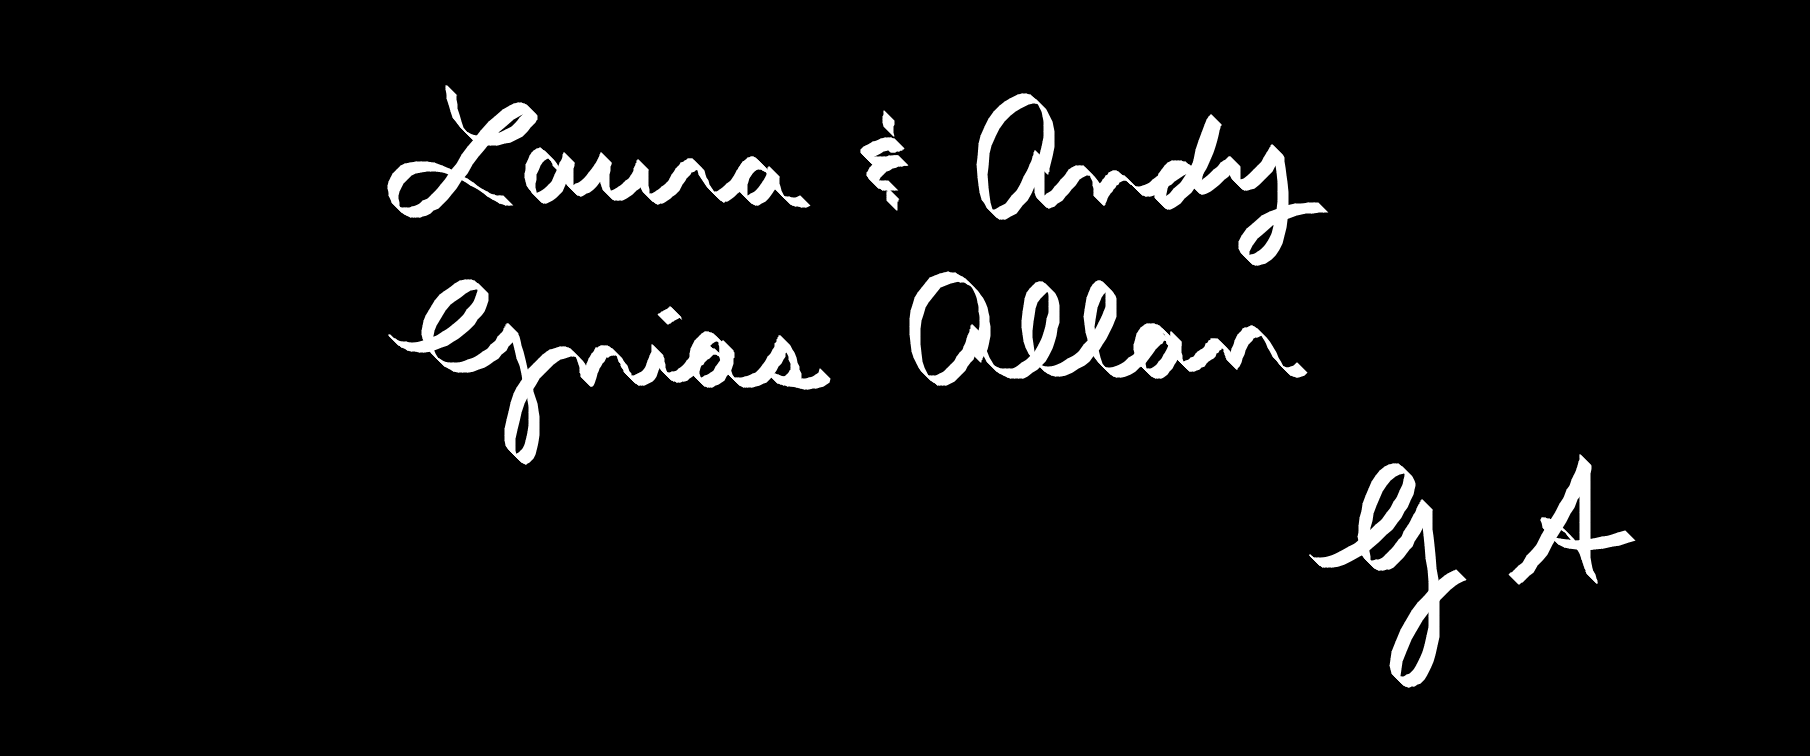 Laura & Andy
Gnias Allan
G A